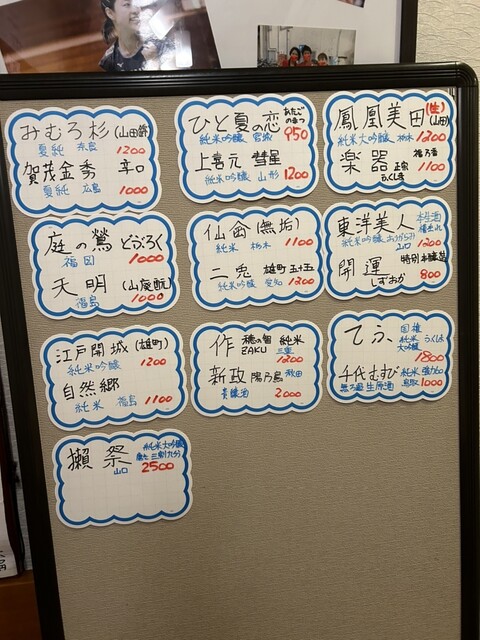 みむろ杉 (山田錦)
夏純 奈良 1200
賀茂金秀 辛口
夏純 広島 1000
ひと夏の恋 あたごのまつ
純米吟醸 宮城 950
上喜元 彗星
純米吟醸 山形 1200
鳳凰美田 (生) (山田)
純米大吟醸 栃木 1300
楽器 正宗
ふくしま 1100
庭の鶯 どぶろく
福岡 1000
天明 (山廃酛)
福島 1000
仙禽 (無垢)
純米 栃木 1100
二兎 雄町 五十五
純米吟醸 愛知 1200
東洋美人
純米吟醸 山口 1200
開運 特別本醸造
しずおか 800
江戸開城 (雄町)
純米吟醸 1200
自然郷
純米 福島 1100
作 穂の智 純米
ZAKU 三重 1200
新政 陽乃鳥 秋田
貴醸酒 2000
てふ 国権
純米大吟醸 ふくしま
1800
千代むすび 純米 強力60
無ろ過生原酒 鳥取 1000
獺祭 純米大吟醸
磨き三割九分
山口 2500